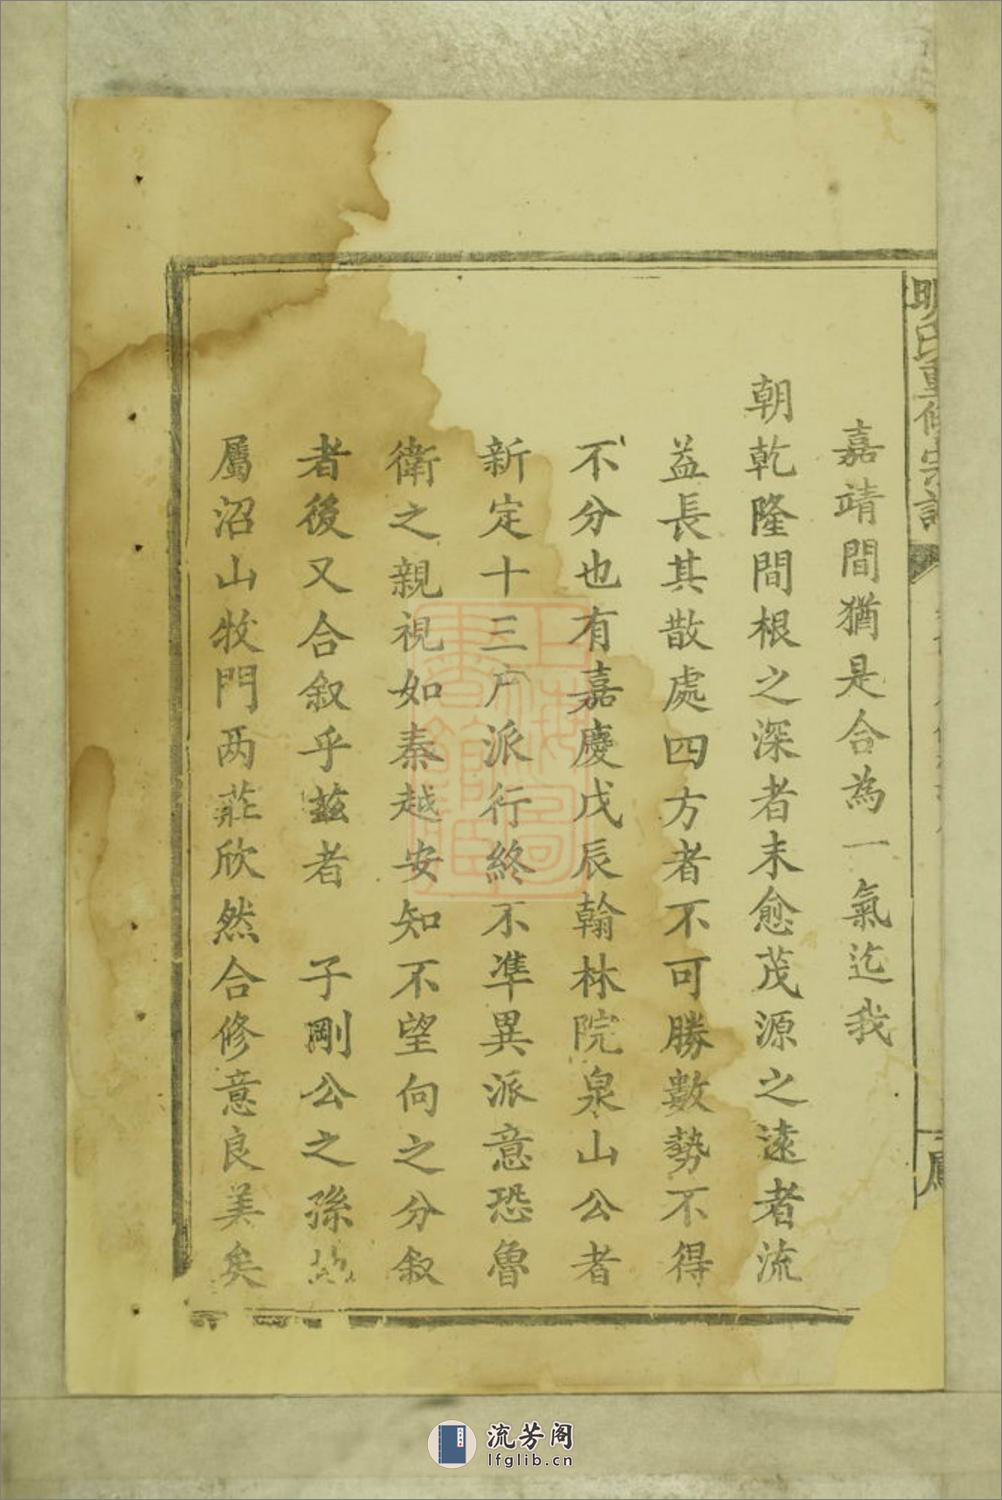 嘉靖間猶是合為一氣迄我
朝乾隆間根之深者末愈茂源之遠者流
益長其散處四方者不可勝數勢不得
不分也有嘉慶戊辰翰林院泉山公者
新定十三户派行終不準異派意恐魯
衛之親視如秦越安知不望向之分叙
者後又合叙乎茲者　子剛公之孫
屬沼山牧門两莊欣然合修意良美矣
氏重修宗譜
上海圖書館藏
流芳阁
lfglib.cn